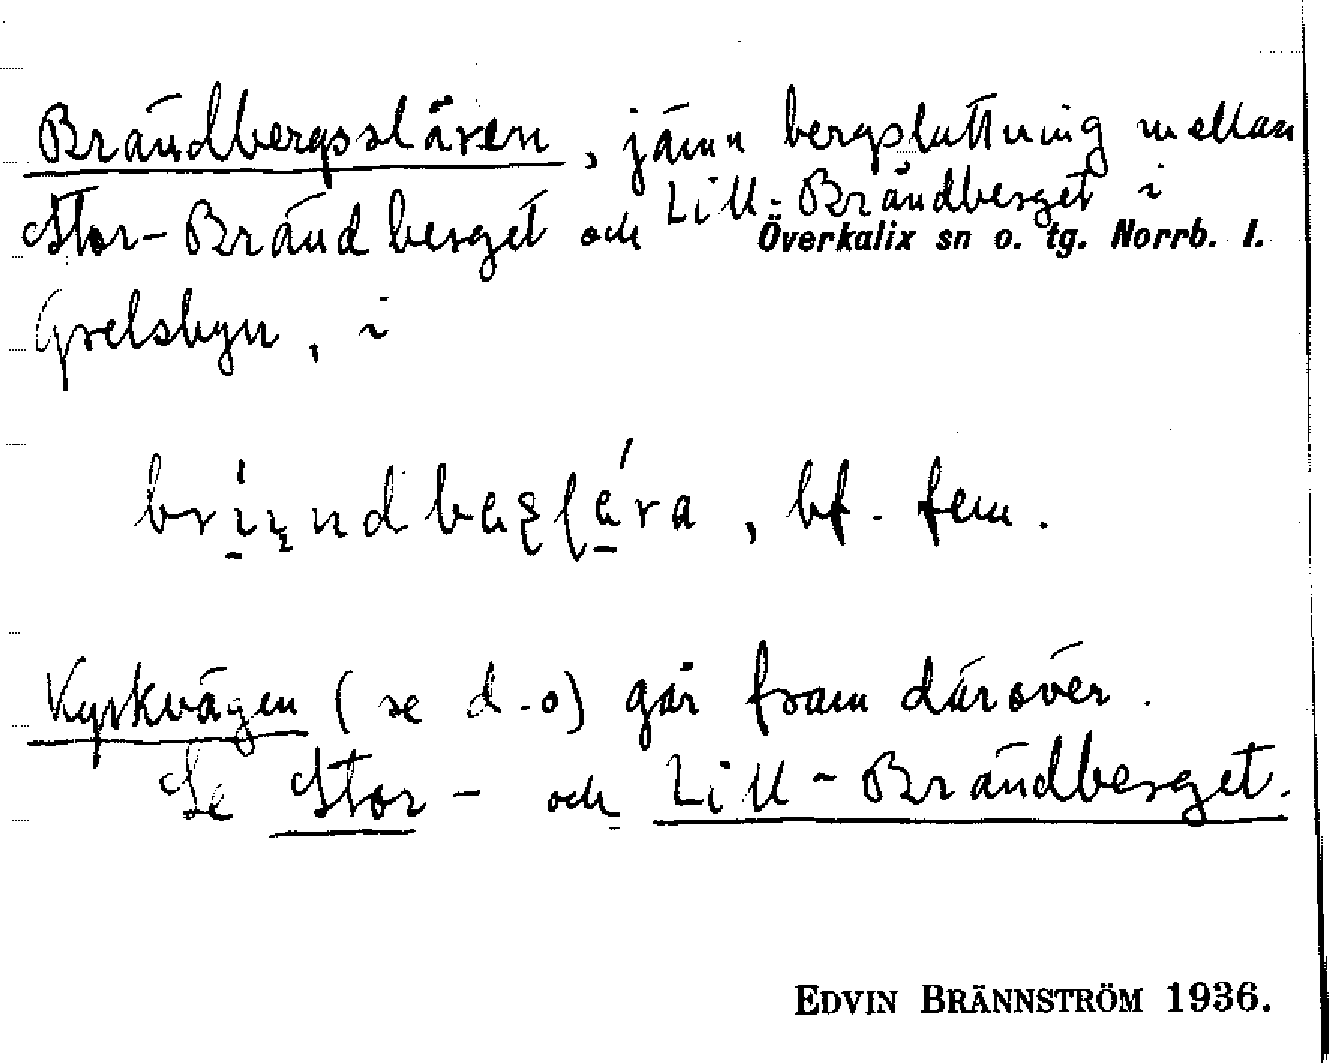 Brändbergsslären, jämn bergsluttning mellan
Stor-Brändberget och Lill-Brändberget i
Överkalix sn o. tg. Norrb. l.
Grelsbyn, i
bf. fem.
Kyrkvägen (se d.o) går fram däröver.
Se Stor- och Lill-Brändberget.
EDVIN BRÄNNSTRÖM 1936.